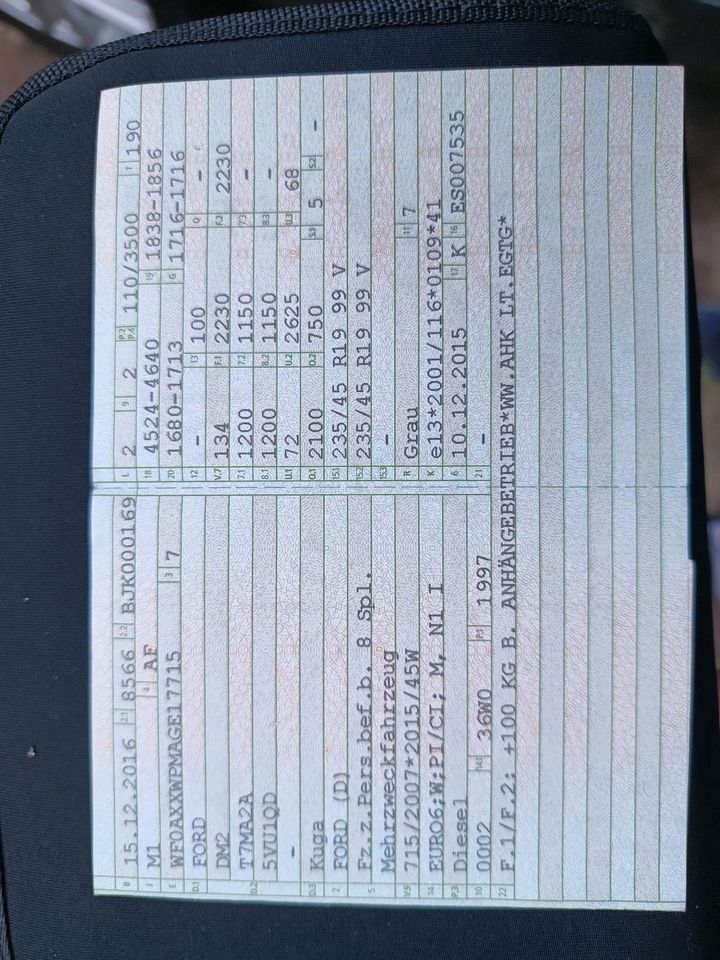 B 15.12.2016 2.1 8566 2.2 BJK000169
J M1 4 AF
E WF0AXXWPMAGE17715 3 7
D.1 FORD
DM2
D.2 T7MA2A
5YU1QD
-
D.3 Kuga
2 FORD (D)
5 Fz.z.Pers.bef.b. 8 Spl.
Mehrzweckfahrzeug
V.9 715/2007*2015/45W
14 EURO6;W;PI/CI; M, N1 I
P.3 Diesel
10 0002 14.1 36W0 P.1 1997
22 F.1/F.2: +100 KG B. ANHÄNGEBETRIEB*WW.AHK LT.EGTG*
L 2 9 2 P.2 P.4 110/3500 T 190
18 4524-4640 19 1838-1856
20 1680-1713 G 1716-1716
12 - 13 100 Q -
V.7 134 F.1 2230 F.2 2230
7.1 1200 7.2 1150 7.3 -
8.1 1200 8.2 1150 8.3 -
U.1 72 U.2 2625 U.3 68
O.1 2100 O.2 750 S.1 5 S.2 -
15.1 235/45 R19 99 V
15.2 235/45 R19 99 V
15.3 -
R Grau 11 7
K e13*2001/116*0109*41
6 10.12.2015 17 K 16 ES007535
21 -